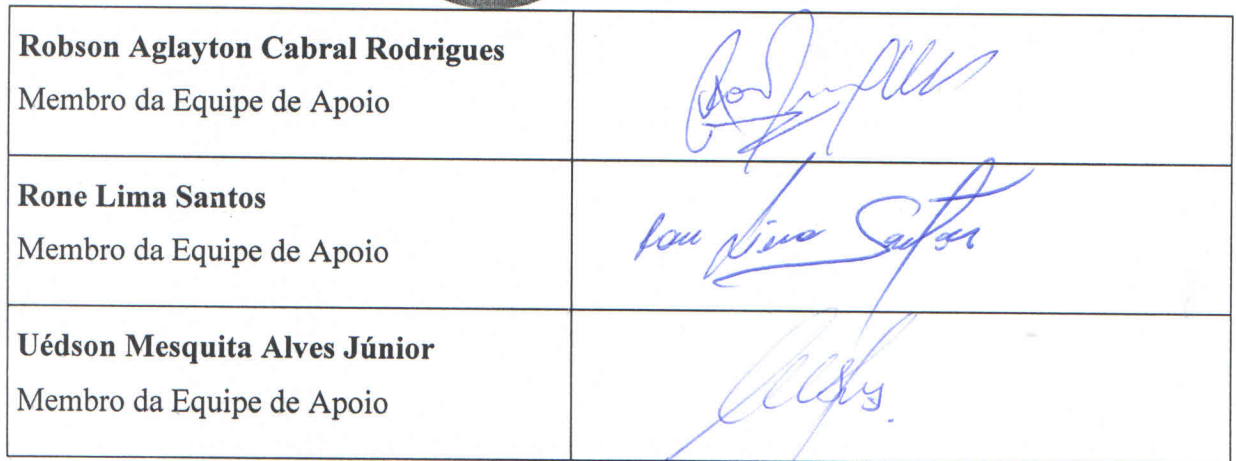 Robson Aglayton Cabral Rodrigues
Membro da Equipe de Apoio
Rone Lima Santos
Membro da Equipe de Apoio
Lima Santos
Uédson Mesquita Alves Júnior
Membro da Equipe de Apoio